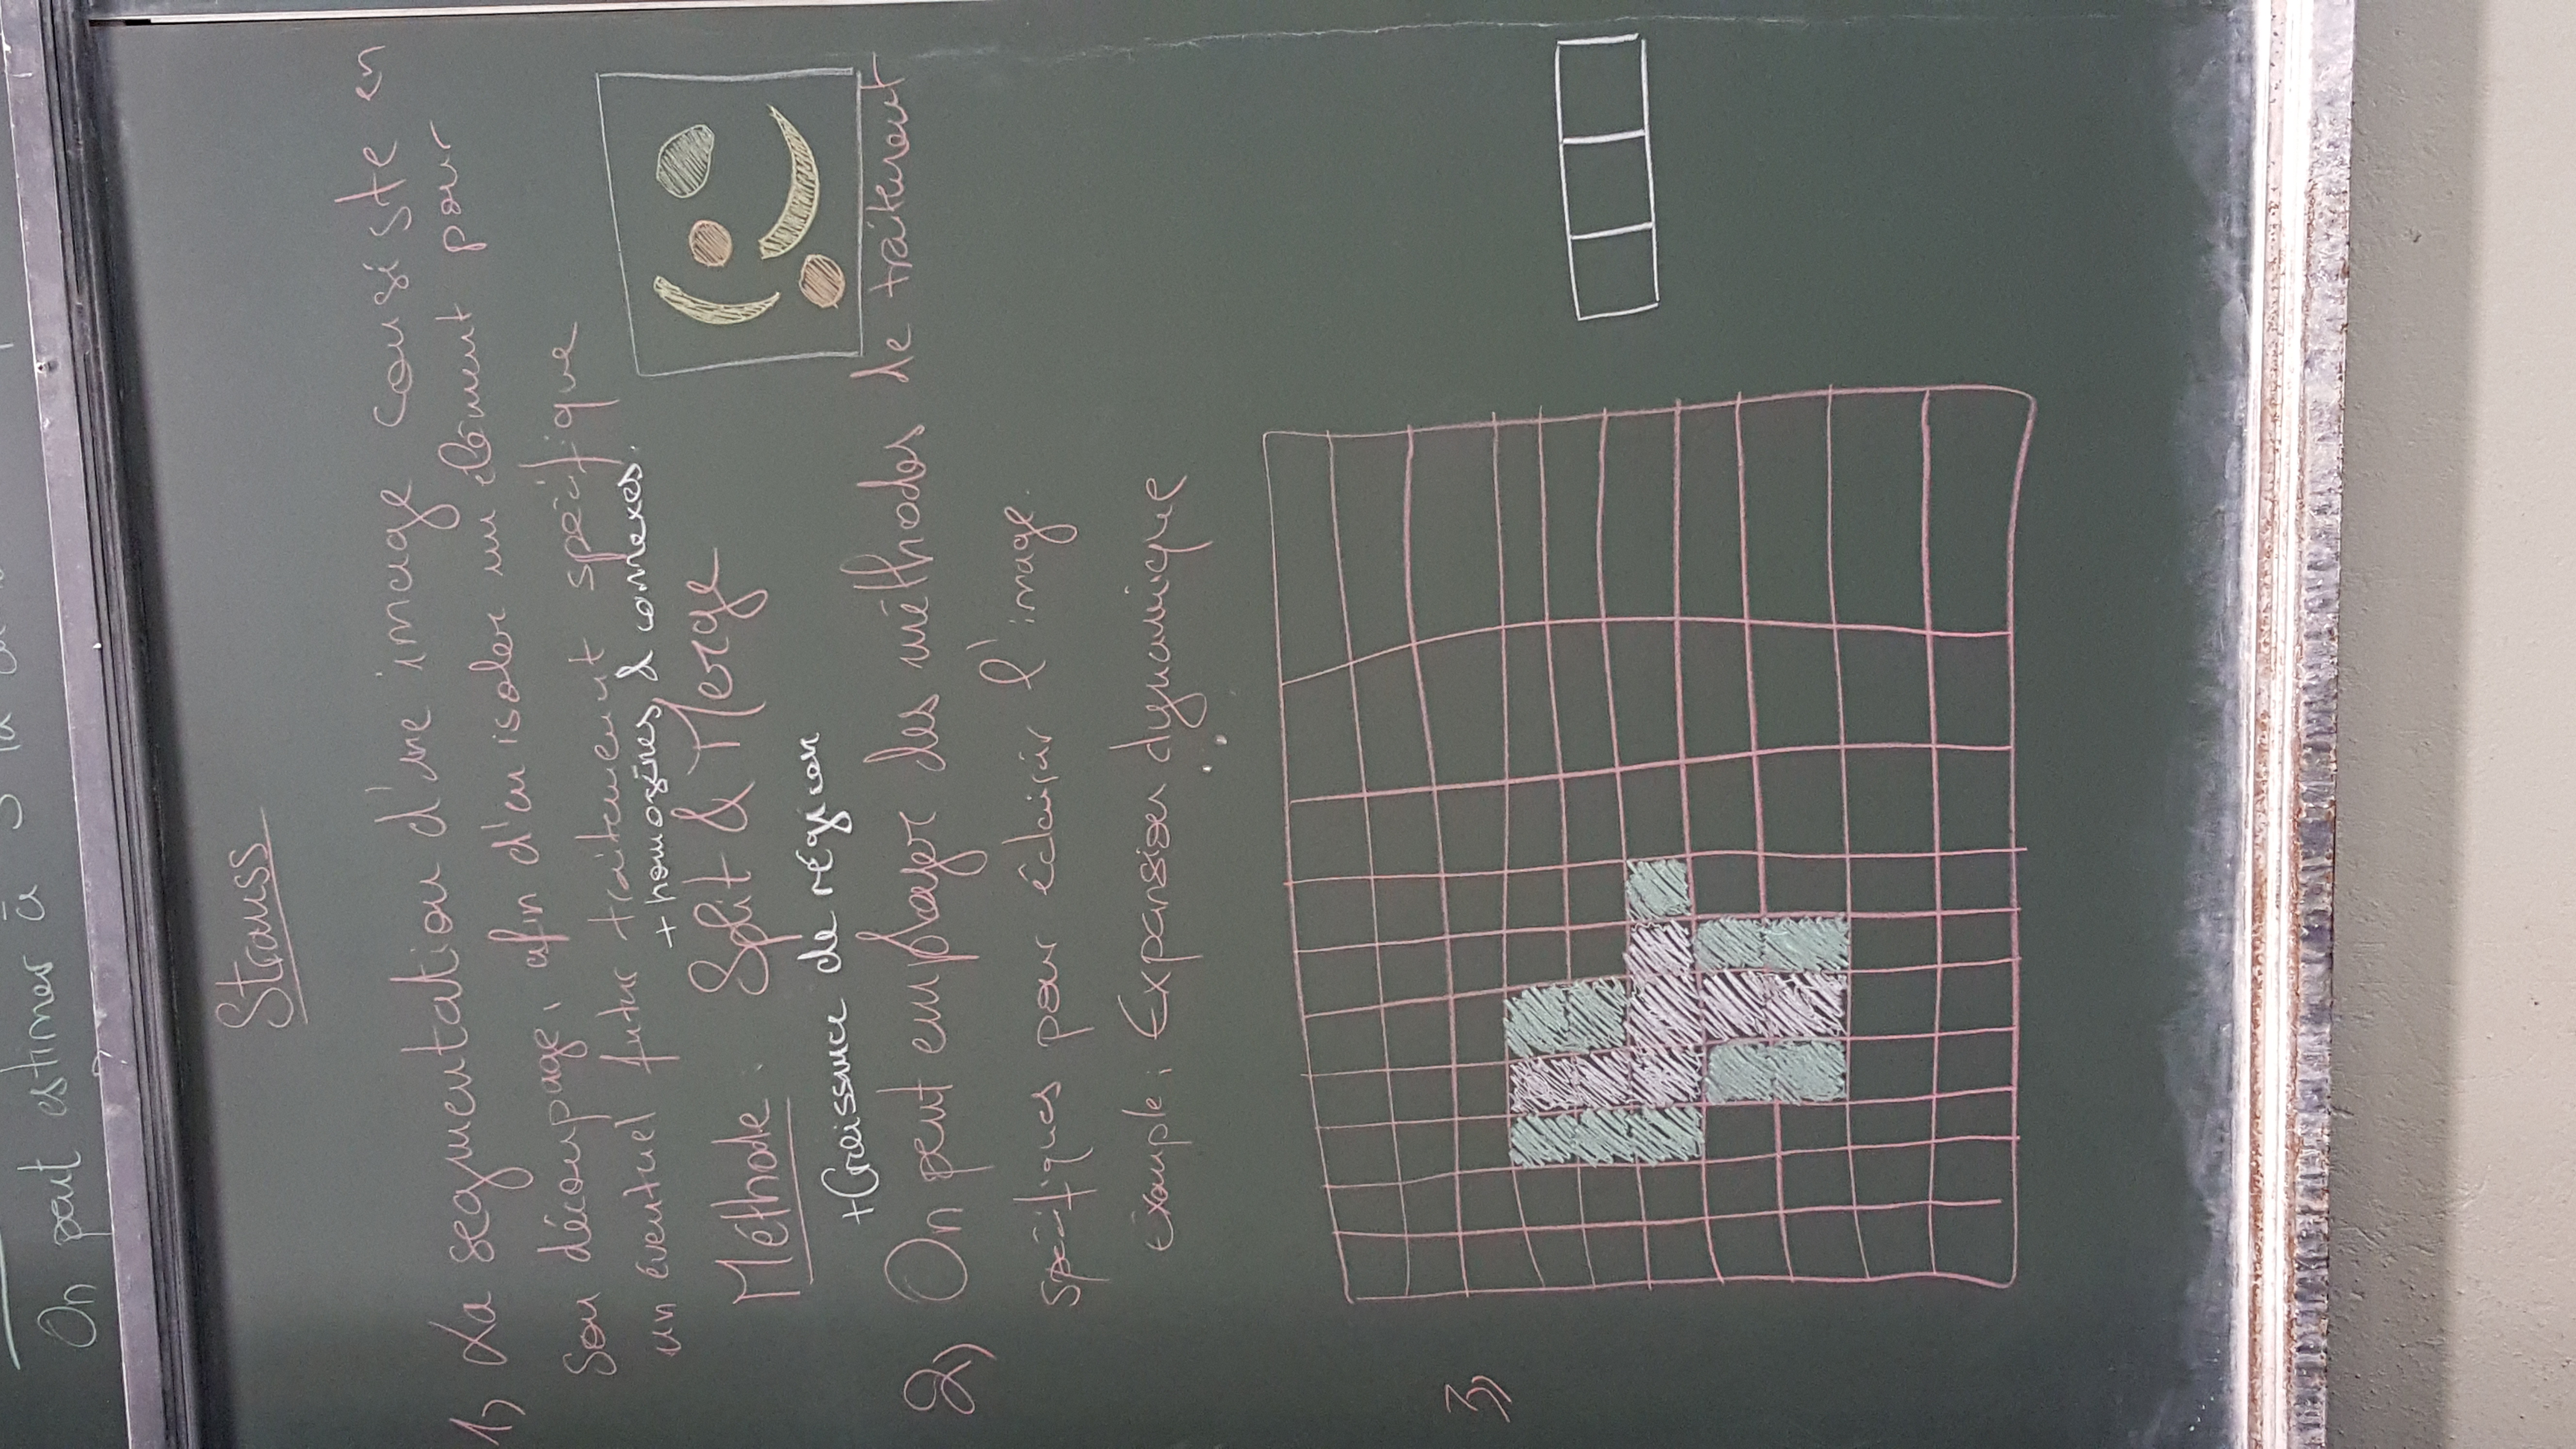 On peut estimer à
Strauss
1) La segmentation d'une image consiste en
son découpage, afin d'en isoler un élément pour
un éventuel futur traitement spécifique
+ homogènes & connexes.
Méthode : Split & Merge
+ Croissance de région
2) On peut employer des méthodes de traitement
spécifiques pour éclaircir l'image.
Exemple : Expansion dynamique
3)